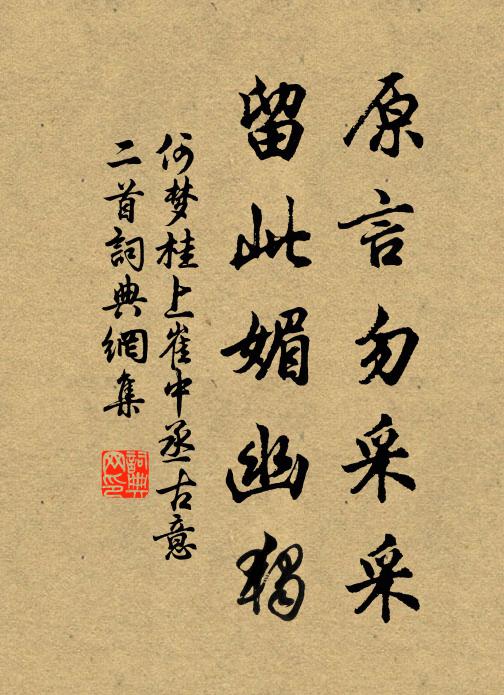 原言勿采采
留此媚幽独
何梦桂上崔中丞古意
二首詞典網集
詞典網印